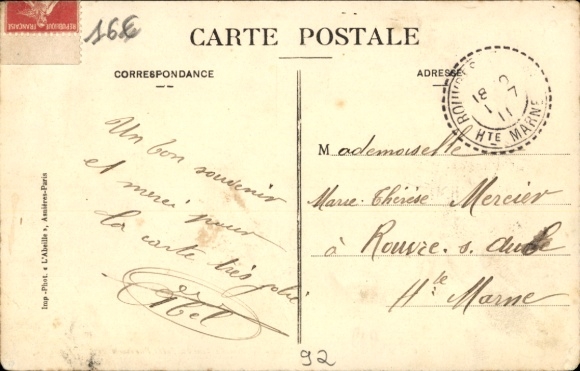 REPUBLIQUE FRANÇAISE
16€
CARTE POSTALE
CORRESPONDANCE
ADRESSE
ROUVRES
18
1 7
11
HTE MARNE
Un bon souvenir
et merci pour
la carte très jolie
Abel
Mademoiselle
Marie-Thérèse Mercier
à Rouvre. s. aube
Hte Marne
Imp.-Phot. « L'Abeille », Asnières-Paris
92